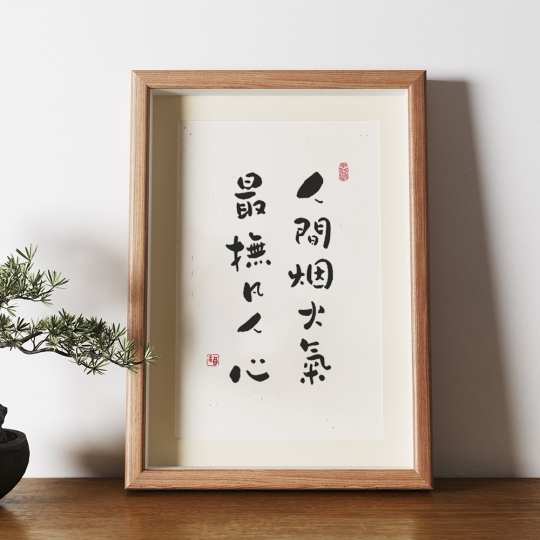 人間烟火氣
最撫凡人心